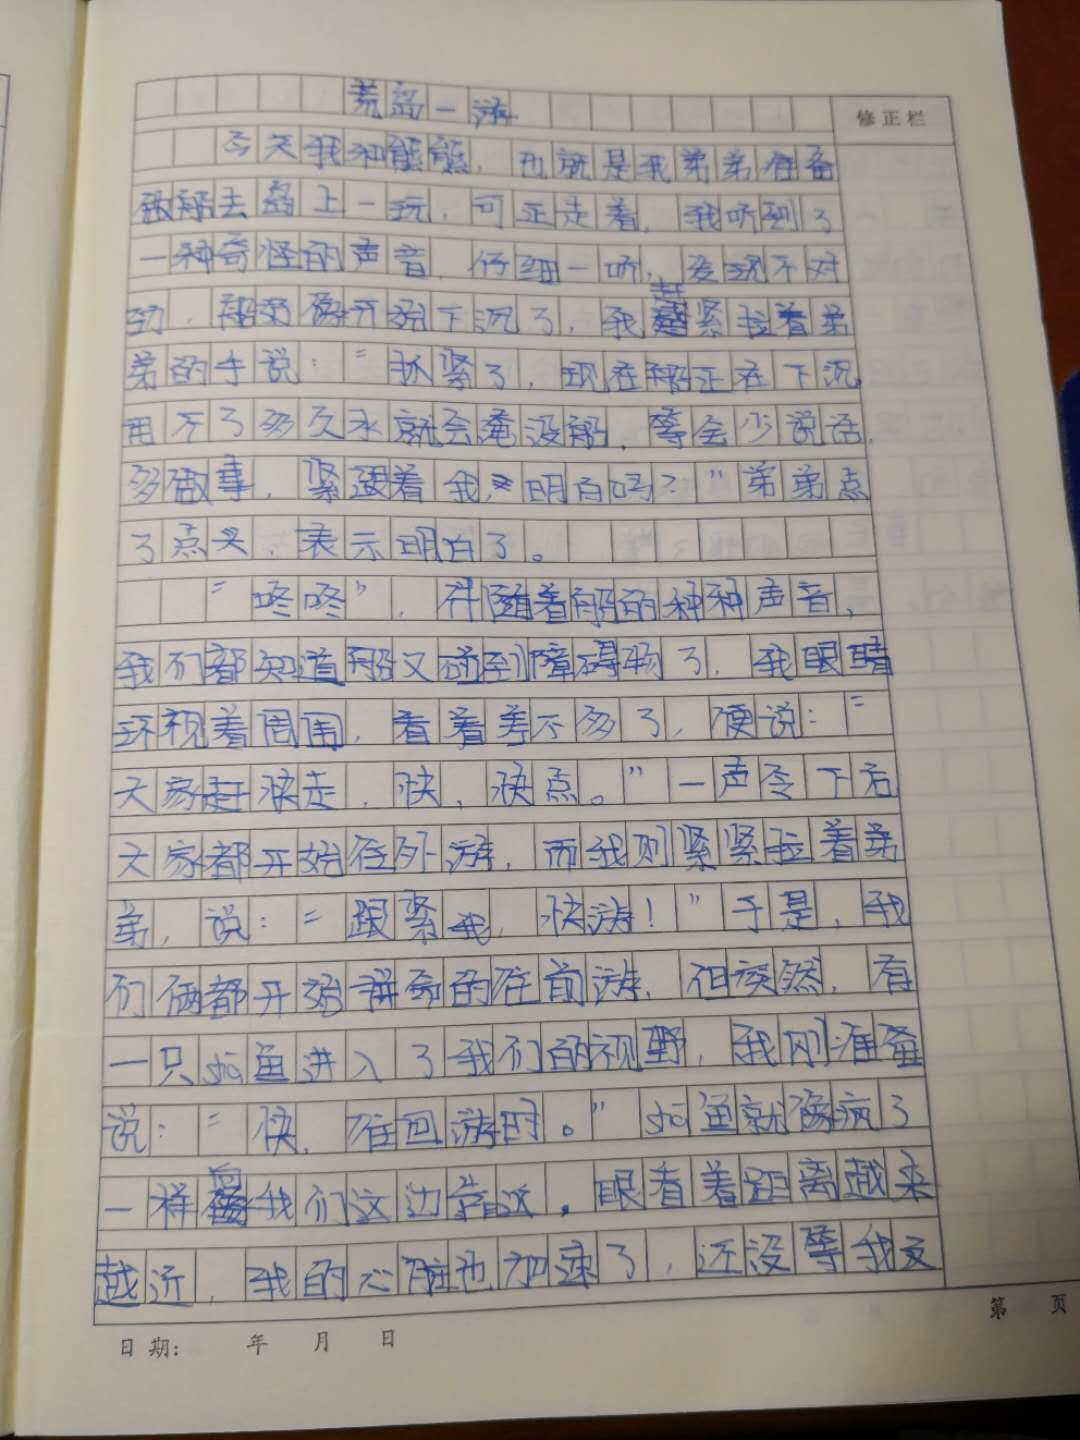 荒岛一游
修正栏
今天我和熊熊，也就是我弟弟准备
乘船去岛上一玩，可正走着，我听到了
一种奇怪的声音，仔细一听，发现不对
劲，船好像开始下沉了，我赶紧拉着弟
弟的手说：“抓紧了，现在船正在下沉，
用不了多久水就会淹没船，等会少说话，
多做事，紧跟着我，明白吗？”弟弟点
了点头，表示明白了。
“咚咚”，伴随着船的种种声音，
我们都知道船又碰到障碍物了，我眼睛
环视着周围，看着差不多了，便说：“
大家赶快走，快，快点。”一声令下后
大家都开始往外游，而我则紧紧拉着弟
弟，说：“跟紧我，快游！”于是，我
们俩都开始拼命的往前游，但突然，有
一只sha鱼进入了我们的视野，我刚准备
说：“快，往回游时。”sha鱼就像疯了
一样向我们这边靠近，眼看着距离越来
越近，我的心脏也加速了，还没等我反
日期： 年 月 日
第 页